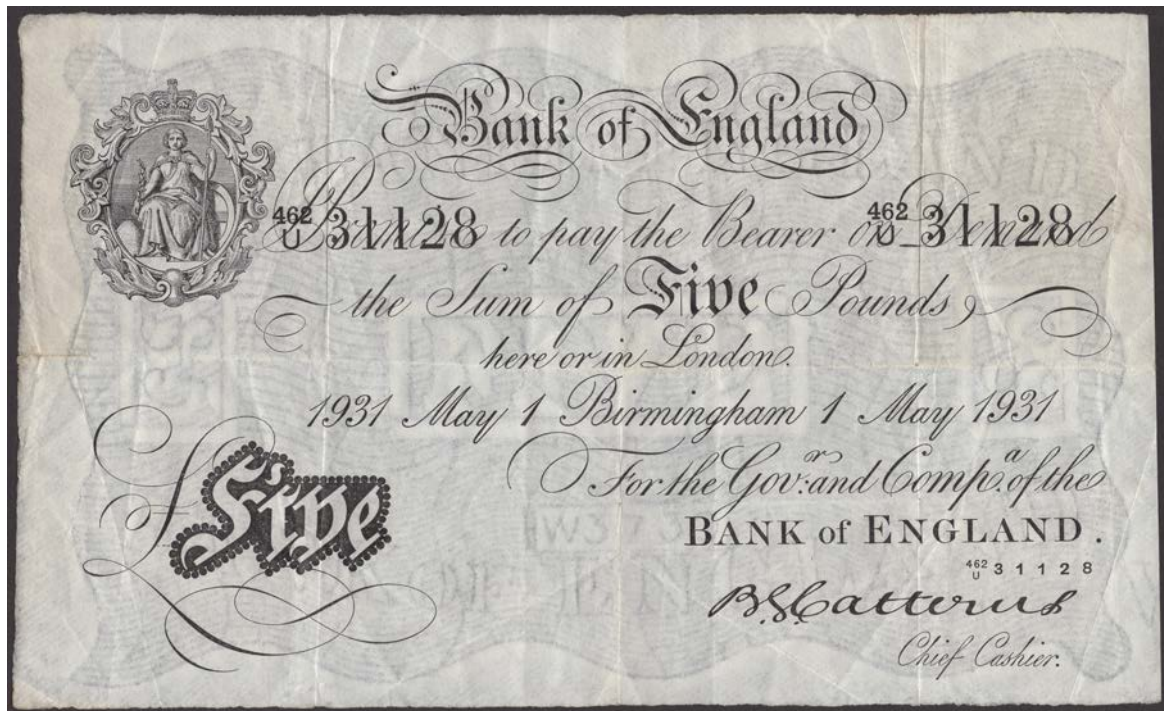 Bank of England
462/U 31128 I Promise to pay the Bearer on Demand 462/U 31128
the Sum of Five Pounds
here or in London.
1931 May 1 Birmingham 1 May 1931
For the Gov.r and Comp.a of the
BANK of ENGLAND.
462/U 31128
B.G. Catterns
Chief Cashier.
£Five